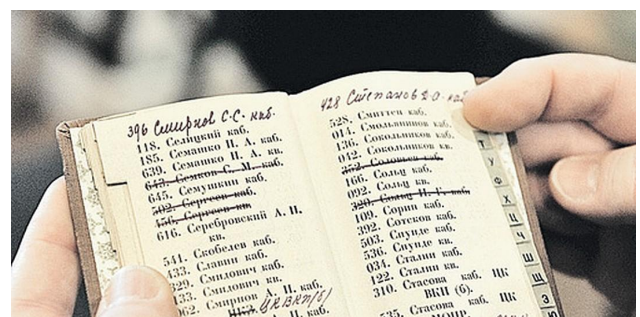 396 Смирнов С.С. каб.
148. Селицкий каб.
185. Семашко Н. А. каб.
639. Семашко Н. А. кв.
643. Семков С. М. каб.
645. Семушкин каб.
502. Сергеев каб.
456. Сергеев кв.
616. Серебровский А. П.
кв.
541. Скобелев каб.
433. Славин каб.
329. Смилович каб.
133. Смилович кв.
062. Смирнов А. П. каб.
ЦКВКП/б/
428 Степанов
528. Смиттен каб.
014. Смольянинов каб.
136. Сокольников каб.
042. Сокольников кв.
352. Соловьев каб.
166. Сольц каб.
092. Сольц кв.
320. Сольц И. Г. каб.
109. Сорин каб.
392. Сотсков каб.
503. Снунде каб.
536. Снунде кв.
034. Сталин каб.
122. Сталин кв.
310. Стасова каб. ЦК
ВКП (б).
535. Стасова каб. ЦК
МОПР.
Т
У
Ф
Х
Ц
Ч
Ш
Щ
Э
Ю